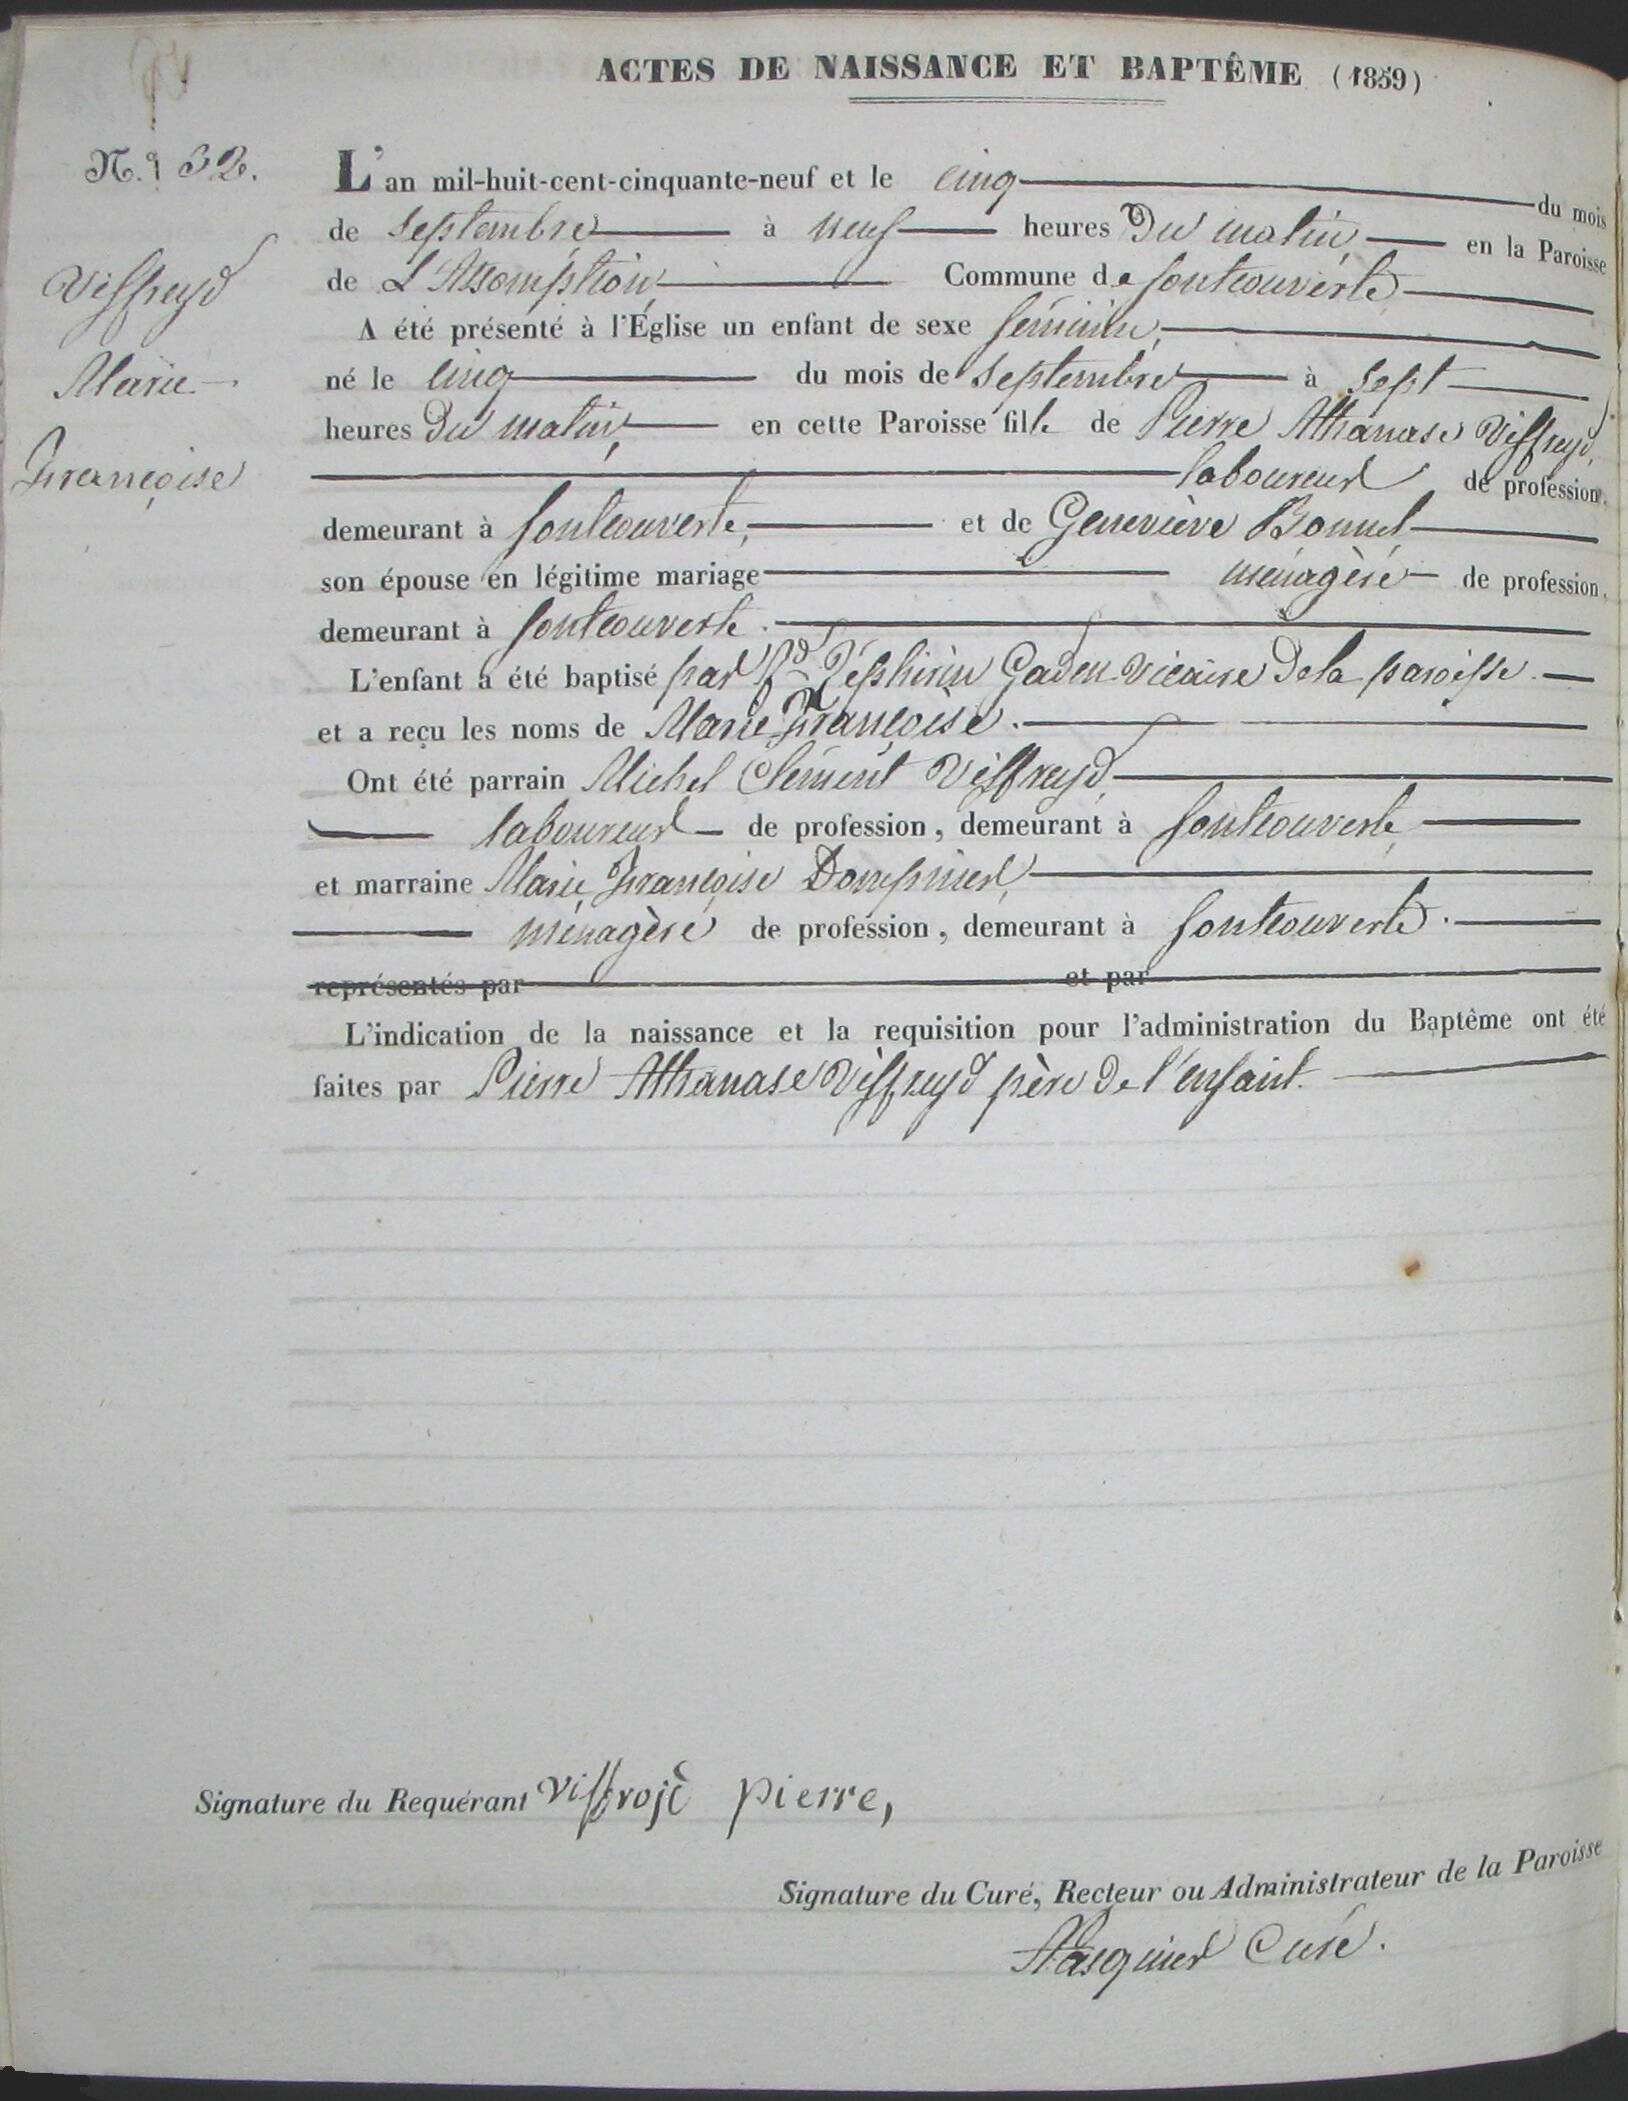 ACTES DE NAISSANCE ET BAPTÊME (1859)
N.º 32.
Viffreyd
Marie
Françoise
L'an mil-huit-cent-cinquante-neuf et le cinq du mois
de septembre à neuf heures du matin en la Paroisse
de L'Assomption Commune de fontcouverte
A été présenté à l'Église un enfant de sexe féminin,
né le cinq du mois de septembre à sept
heures du matin, en cette Paroisse fille de Pierre Athanase Viffreyd,
laboureur de profession.
demeurant à fontcouverte, et de Geneviève Bonnel
son épouse en légitime mariage ménagère de profession,
demeurant à fontcouverte.
L'enfant a été baptisé par Rd Zéphirin Gaden Vicaire de la paroisse.
et a reçu les noms de Marie Françoise.
Ont été parrain Michel Clément Viffreyd,
laboureur de profession, demeurant à fontcouverte,
et marraine Marie Françoise Dompnier,
ménagère de profession, demeurant à fontcouverte.
représentés par et par
L'indication de la naissance et la requisition pour l'administration du Baptême ont été
faites par Pierre Athanase Viffreyd père de l'enfant.
Signature du Requérant pierre,
Signature du Curé, Recteur ou Administrateur de la Paroisse
Pasquier Curé.